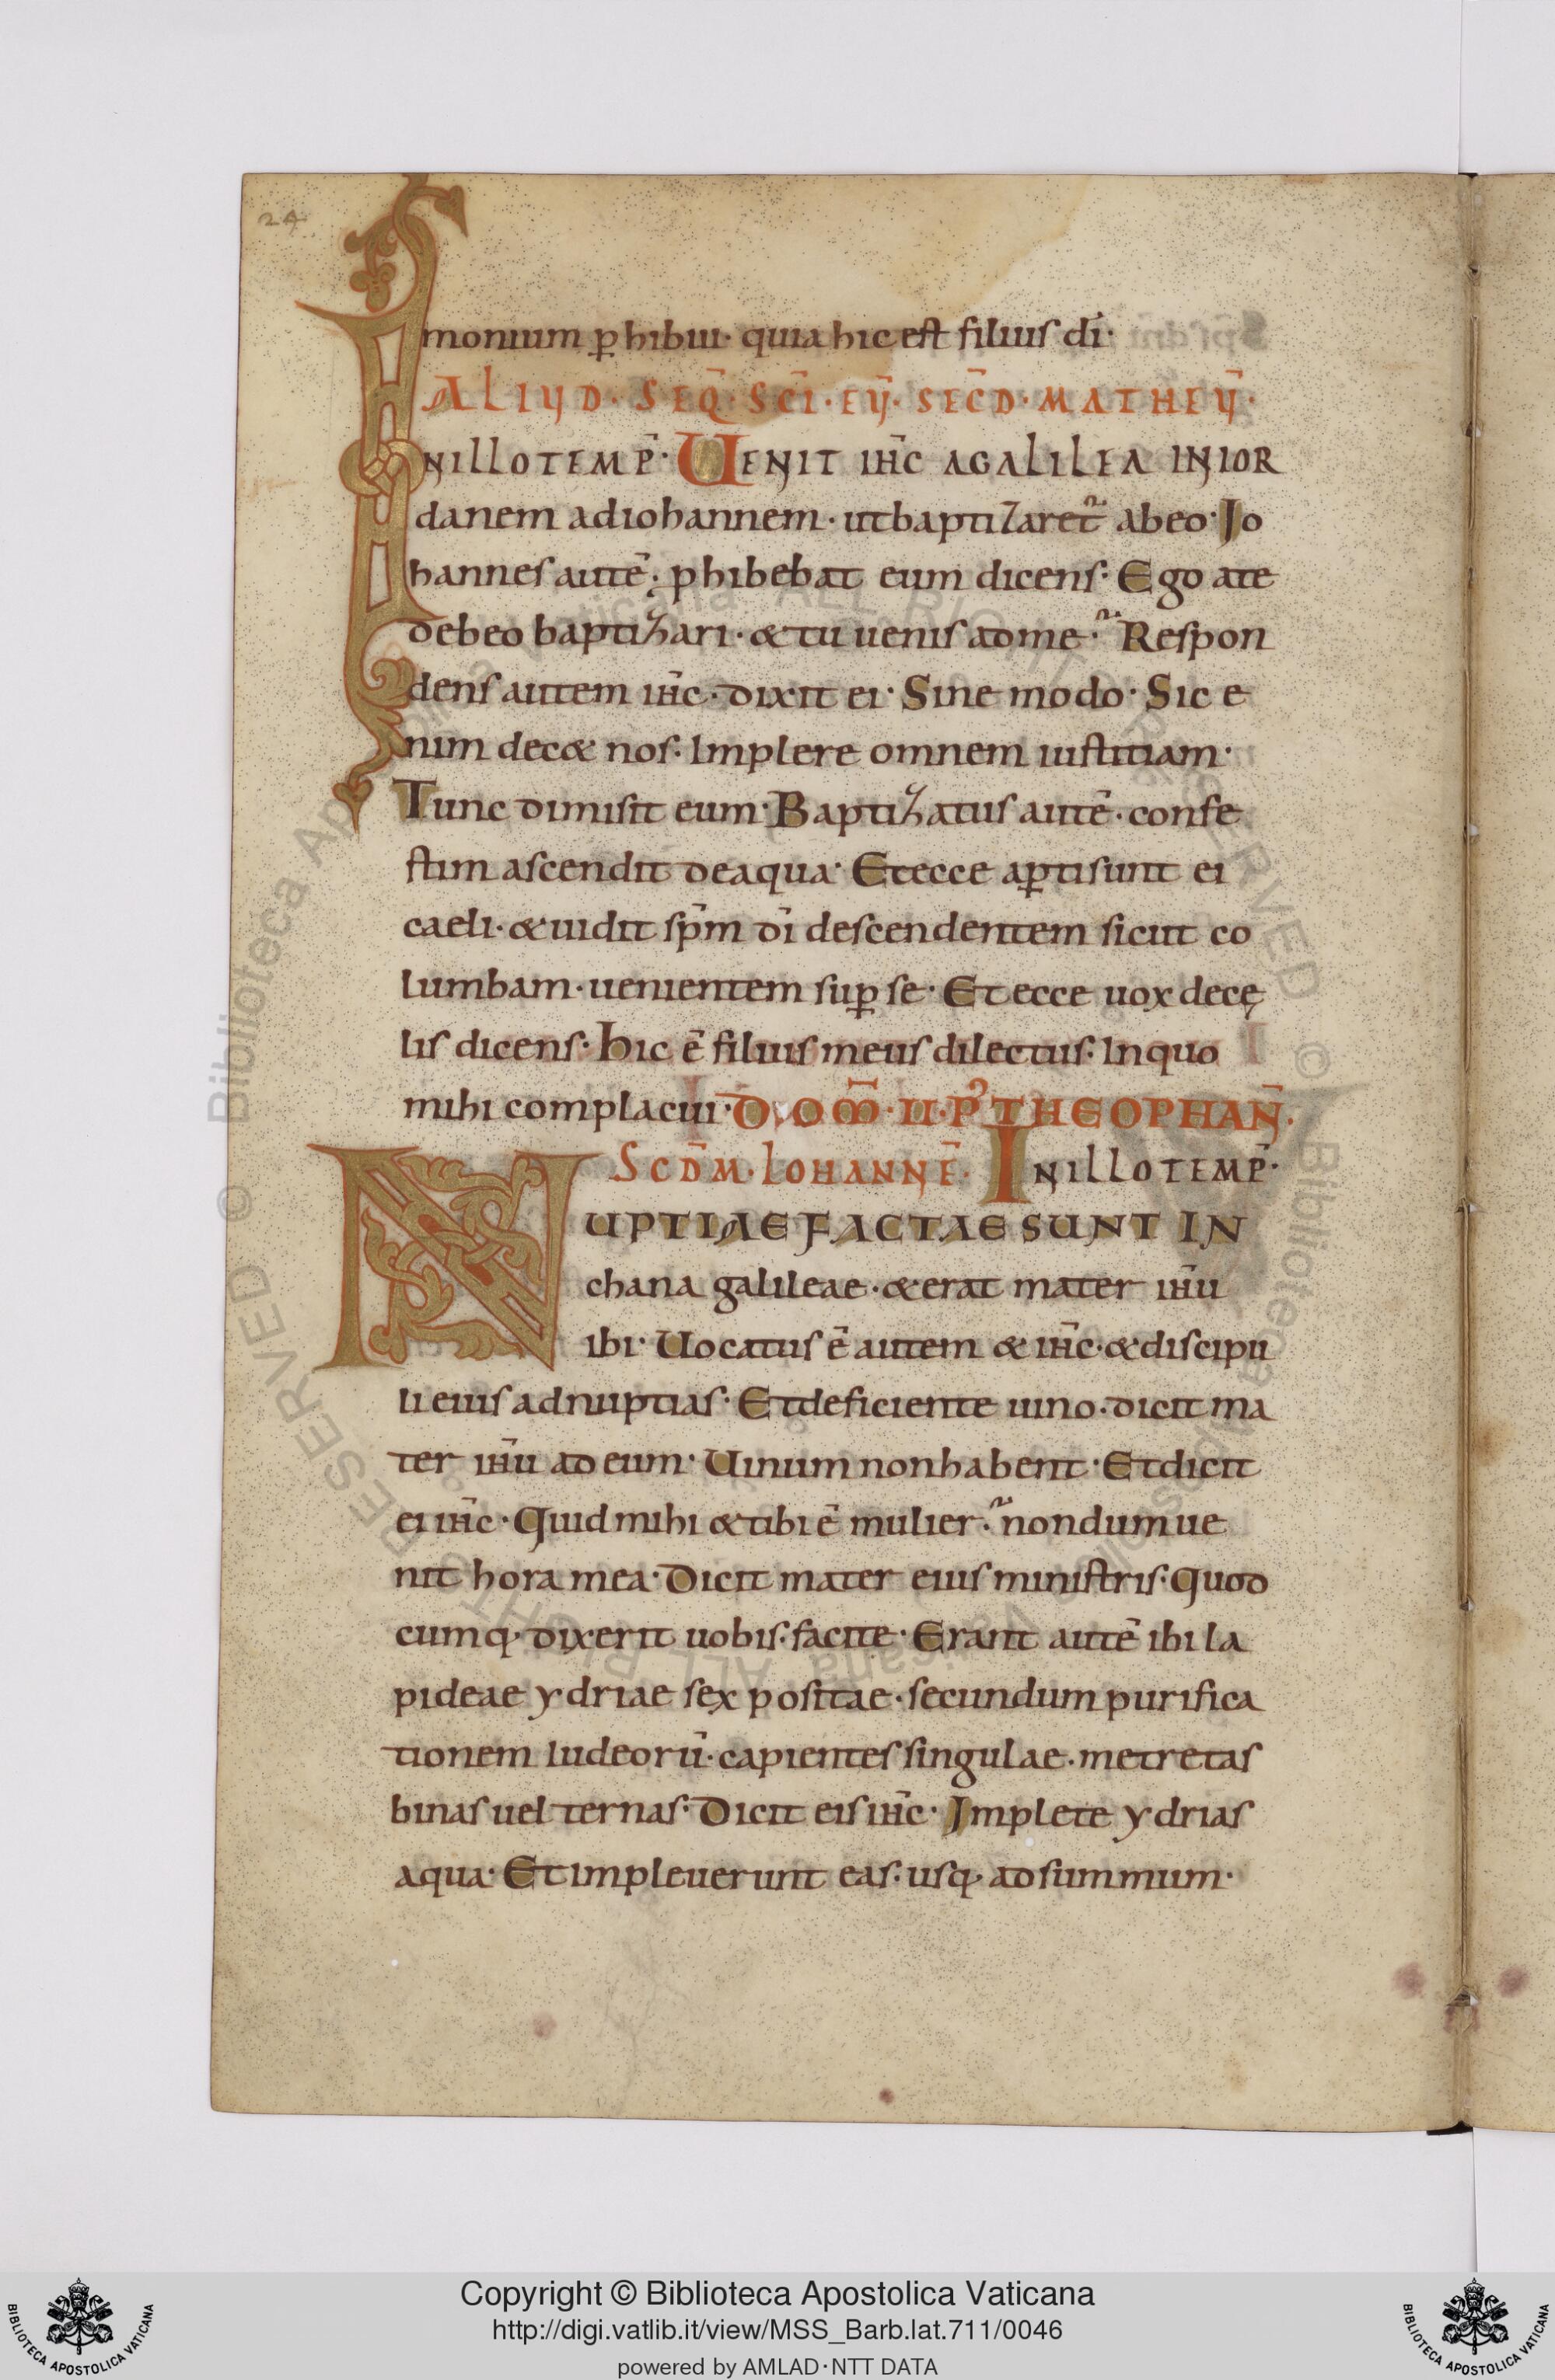 24
monium ꝑhibui· quia hic est filius dī·
ALIUD· SEQ̄· SC̄I· EŪ· SEC̄D· MATHEŪ·
INILLOTEMP̄· UENIT IH̄C AGALILEA INIOR
danem adiohannem· utbaptizaret᷑ abeo· Jo
hannes autē· ꝓhibebat eum dicens· Ego ate
debeo baptizari· & tu uenis adme·᷑ Respon
dens autem ih̄c· dixit ei· Sine modo· Sic e
nim dec& nos· Implere omnem iustitiam·
Tunc dimisit eum· Baptizatus autē· confe
stim ascendit deaqua· Etecce aꝑtisunt ei
caeli· & uidit sp̄m dī descendentem sicut co
lumbam· uenientem suꝑ se· Et ecce uox decę
lis dicens· Hic ē filius meus dilectus· Inquo
mihi complacui· D· OM̄· II· P᷒ THEOPHAN̄·
SCD̄M· IOHANNĒ· INILLOTEMP̄·
NUPTIAE FACTAE SUNT IN
chana galileae· & erat mater ih̄u
ibi· Uocatus ē autem & ih̄c· & discipu
li eius adnuptias· Etdeficiente uino· dicit ma
ter ih̄u ad eum· Uinum nonhabent· Etdicit
ei ih̄c· Quid mihi &tibi ē mulier·᷑ nondum ue
nit hora mea· Dicit mater eius ministris· Quod
cumq· dixerit uobis· facite· Erant autē ibi la
pideae ydriae sex positae· secundum purifica
tionem Iudeorū· capientes singulae· metretas
binas uel ternas· Dicit eis ih̄c· Jmplete ydrias
aqua· Et impleuerunt eas· usq· adsummum·
© Biblioteca Apostolica Vaticana ALL RIGHTS RESERVED
Copyright © Biblioteca Apostolica Vaticana
http://digi.vatlib.it/view/MSS_Barb.lat.711/0046
powered by AMLAD·NTT DATA
BIBLIOTECA APOSTOLICA VATICANA
BIBLIOTECA APOSTOLICA VATICANA